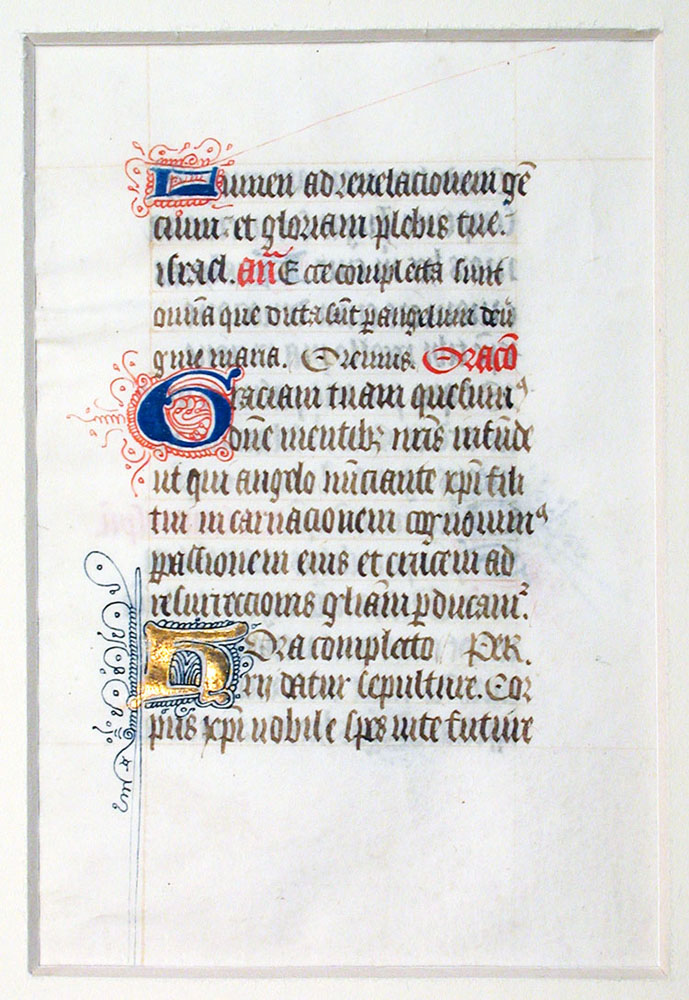 Lumen ad revelacionem gē
cium. et gloriam plebis tue.
israel. añ Ecce completa sunt
om̄ia que dicta sūt ꝑ angelum deū
gine maria. Oremus. Oracō
Graciam tuam quesumꝰ
dōne mentibꝫ nr̄is infūde
ut qui angelo nūciante xp̄i fili
tui incarnacionem cognouimꝰ
passionem eius et crucem ad
resurrectionis gl̄iam ꝑducamꝰ.
Hora completo Per.
rij datur sepulture. Cor
pus xp̄i nobile spes uite future